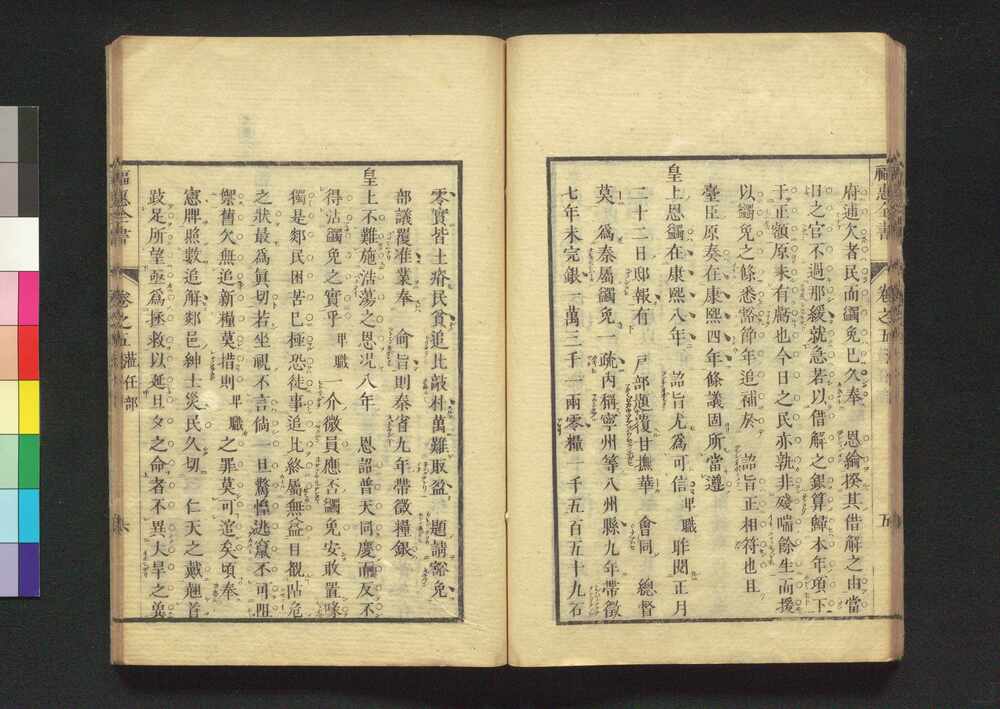 福惠全書 卷之五 五
府逋欠者民而蠲免巳久奉 恩綸揆其借解之由當
日之官不過那緩就急若以借解之銀算歸本年項下
于正額原未有虧也今日之民亦孰非殘喘餘生而援
以蠲免之條悉豁節年追補於 詔旨正相符也且
臺臣原奏在康熙四年條議固所當遵
皇上恩蠲在康熙八年 詔旨尤爲可信卑職昨閱正月
二十二日邸報有 戸部題覆甘撫華 會同 總督
莫 爲秦屬蠲免一疏内稱寧州等八州縣九年帶徵
七年未完銀一萬三千一兩零糧一千五百五十九石
零實皆土瘠民貧追比敲朴萬難取盈 題請豁免
部議覆准業奉 俞旨則秦省九年帶徵糧銀
皇上不難施浩蕩之恩况八年 恩詔普天同慶而反不
得沾蠲免之實乎 卑職一介微員應否蠲免安敢置喙
獨是郯民困苦巳極恐徒事追比終屬無益目覩阽危
之狀最爲眞切若坐視不言倘一旦驚惶逃竄不可阻
禦舊欠無追新糧莫措則卑職之罪莫可逭矣頃奉
憲牌照數追解郯邑紳士災民久切 仁天之戴翹首
跂足所望亟爲拯救以延旦夕之命者不異大旱之望
福惠全書 卷之五 蒞任部